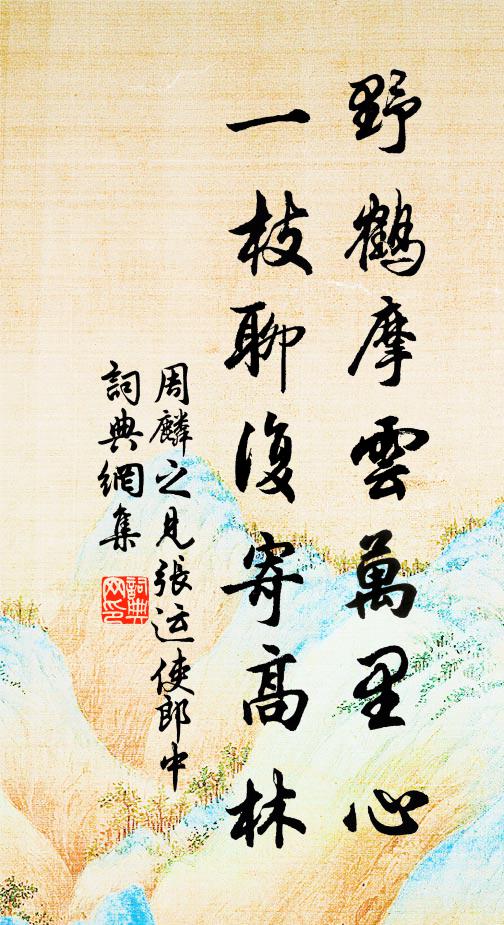 野鶴摩雲萬里心
一枝聊復寄高林
周麟之見張运使郎中
詞典網集
詞典
网印